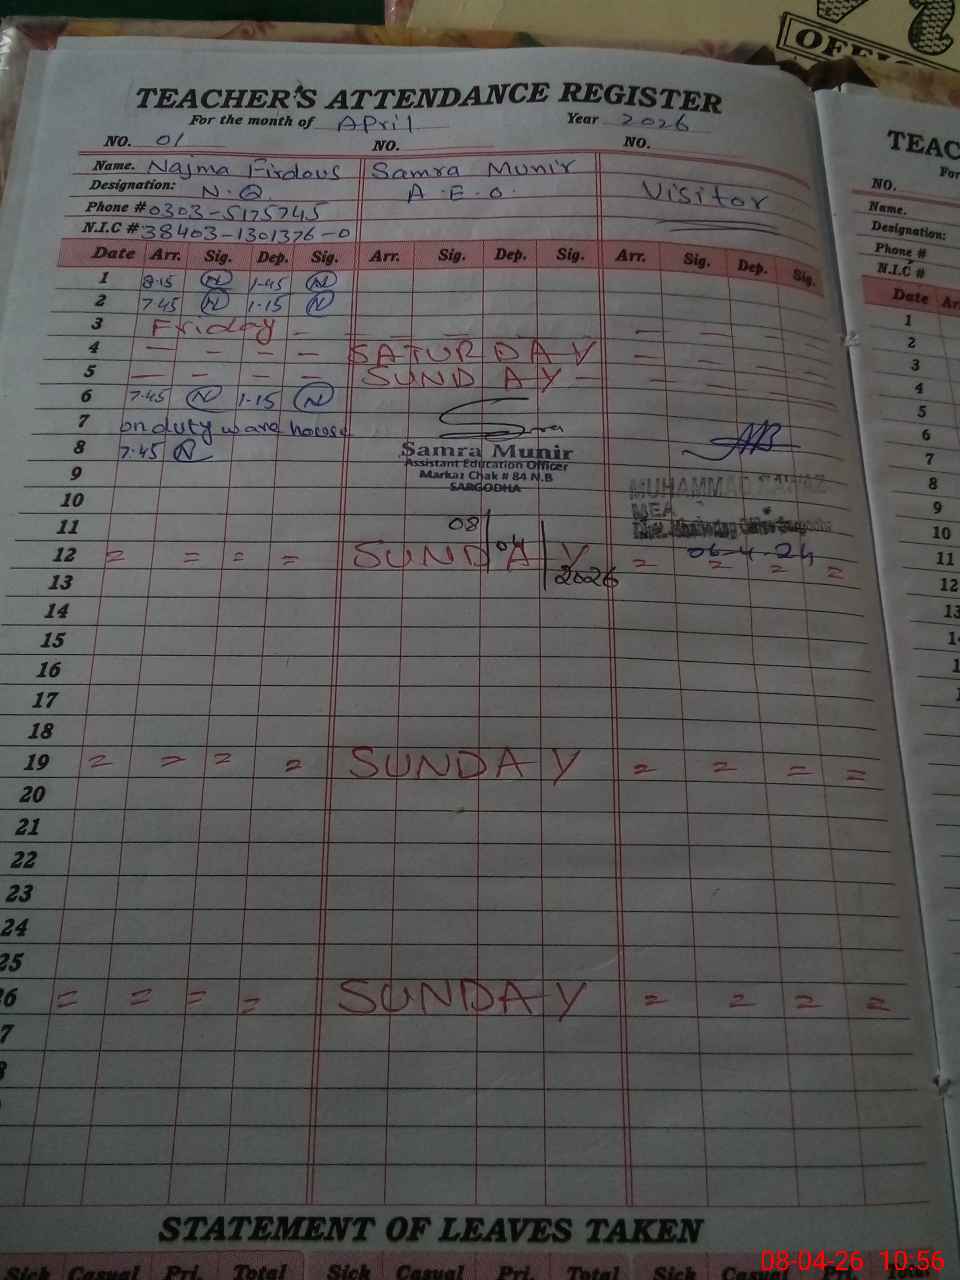 OFFIC
TEACHER'S ATTENDANCE REGISTER
For the month of April Year 2026
NO. 01 NO. NO.
Name. Najma Firdous Samra Munir
Designation: N.Q. A.E.O. Visitor
Phone # 0303-5175745
N.I.C # 38403-1301376-0
Date Arr. Sig. Dep. Sig. Arr. Sig. Dep. Sig. Arr. Sig. Dep. Sig.
1 8.15 N 1-45 N
2 7.45 N 1-15 N
3 Friday
4 SATURDAY
5 SUNDAY
6 7.45 N 1-15 N
7 on duty ware house
8 7.45 N
Samra Munir
Assistant Education Officer
Markaz Chak # 84 N.B
SARGODHA
MUHAMMAD NAWAZ
MEA
9
10
11 08/04/2026
12 = = = = SUNDAY = = = =
06-4-24
13
14
15
16
17
18
19 = = = = SUNDAY = = = =
20
21
22
23
24
25
26 = = = = SUNDAY = = = =
7
STATEMENT OF LEAVES TAKEN
Sick Casual Pri. Total Sick Casual Pri. Total Sick Casual
TEAC
For
NO.
Name.
Designation:
Phone #
N.I.C #
Date Ar
1
2
3
4
5
6
7
8
9
10
11
12
13
08-04-26 10:56